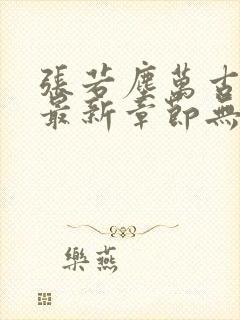 張若塵萬古
最新章節無
樂燕